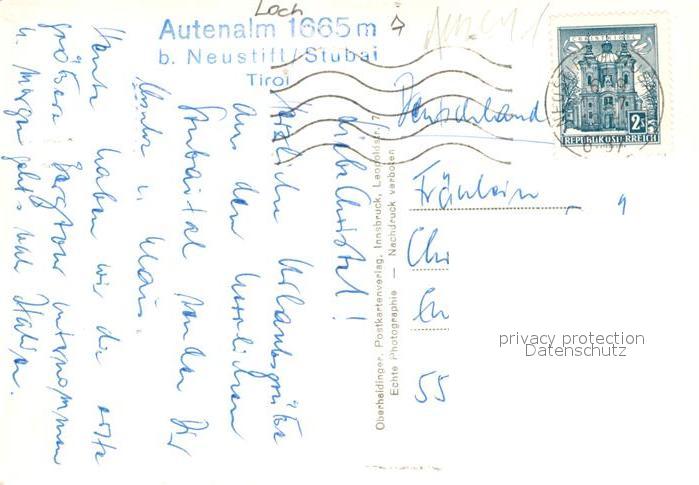 Loch
Autenalm 1665m
b. Neustift/Stubai
Tirol
Liebe Christel!
Herzliche Urlaubsgrüße
aus dem herrlichen
Stubaital senden Dir
u. Klaus.
Heute haben wir die erste
größere Bergtour unternommen
u. morgen geht's nach Italien.
Oberhaidinger, Postkartenverlag, Innsbruck, Leopoldstr. 7
Echte Photographie — Nachdruck verboten
CHRISTKINDL
2S
REPUBLIK ÖSTERREICH
Deutschland
Fräulein
Chr
En
55
privacy protection
Datenschutz